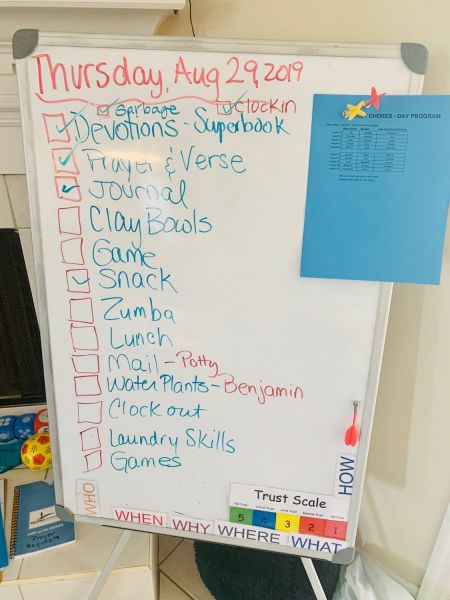 Thursday, Aug 29, 2019
Garbage Clock in
Devotions - Superbook
Prayer & Verse
Journal
Clay Bowls
Game
Snack
Zumba
Lunch
Mail - Potty
Water Plants - Benjamin
Clock out
Laundry Skills
Games
CHORES - DAY PROGRAM
Trust Scale
5 4 3 2 1
WHO
WHEN WHY WHERE WHAT
HOW
Prayer
Requests